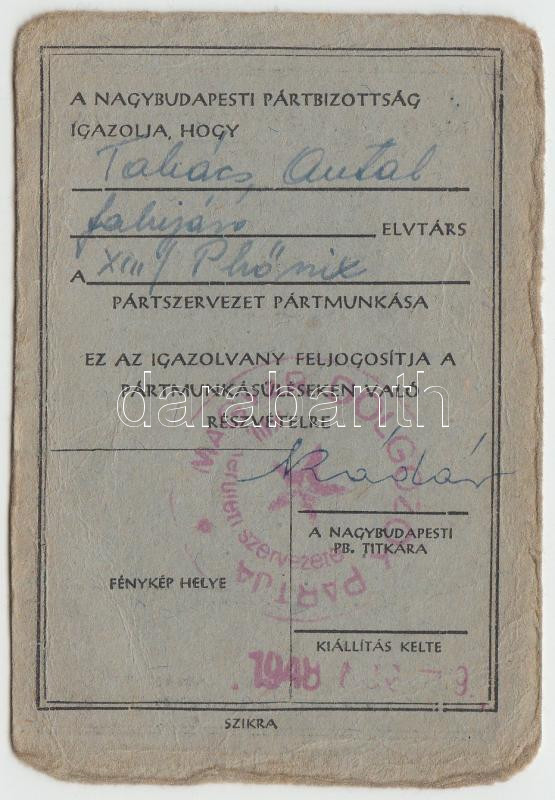 A NAGYBUDAPESTI PÁRTBIZOTTSÁG
IGAZOLJA, HOGY
Takács, Antal
ELVTÁRS
A XIII/ Phőnix
PÁRTSZERVEZET PÁRTMUNKÁSA
EZ AZ IGAZOLVANY FELJOGOSÍTJA A
PÁRTMUNKÁSÜLÉSEKEN VALÓ
RÉSZVÉTELRE
darabanth
MAGYAR DOLGOZÓK PÁRTJA
III.
kerületi szervezete
Kádár
A NAGYBUDAPESTI
PB. TITKÁRA
FÉNYKÉP HELYE
KIÁLLÍTÁS KELTE
1948
SZIKRA